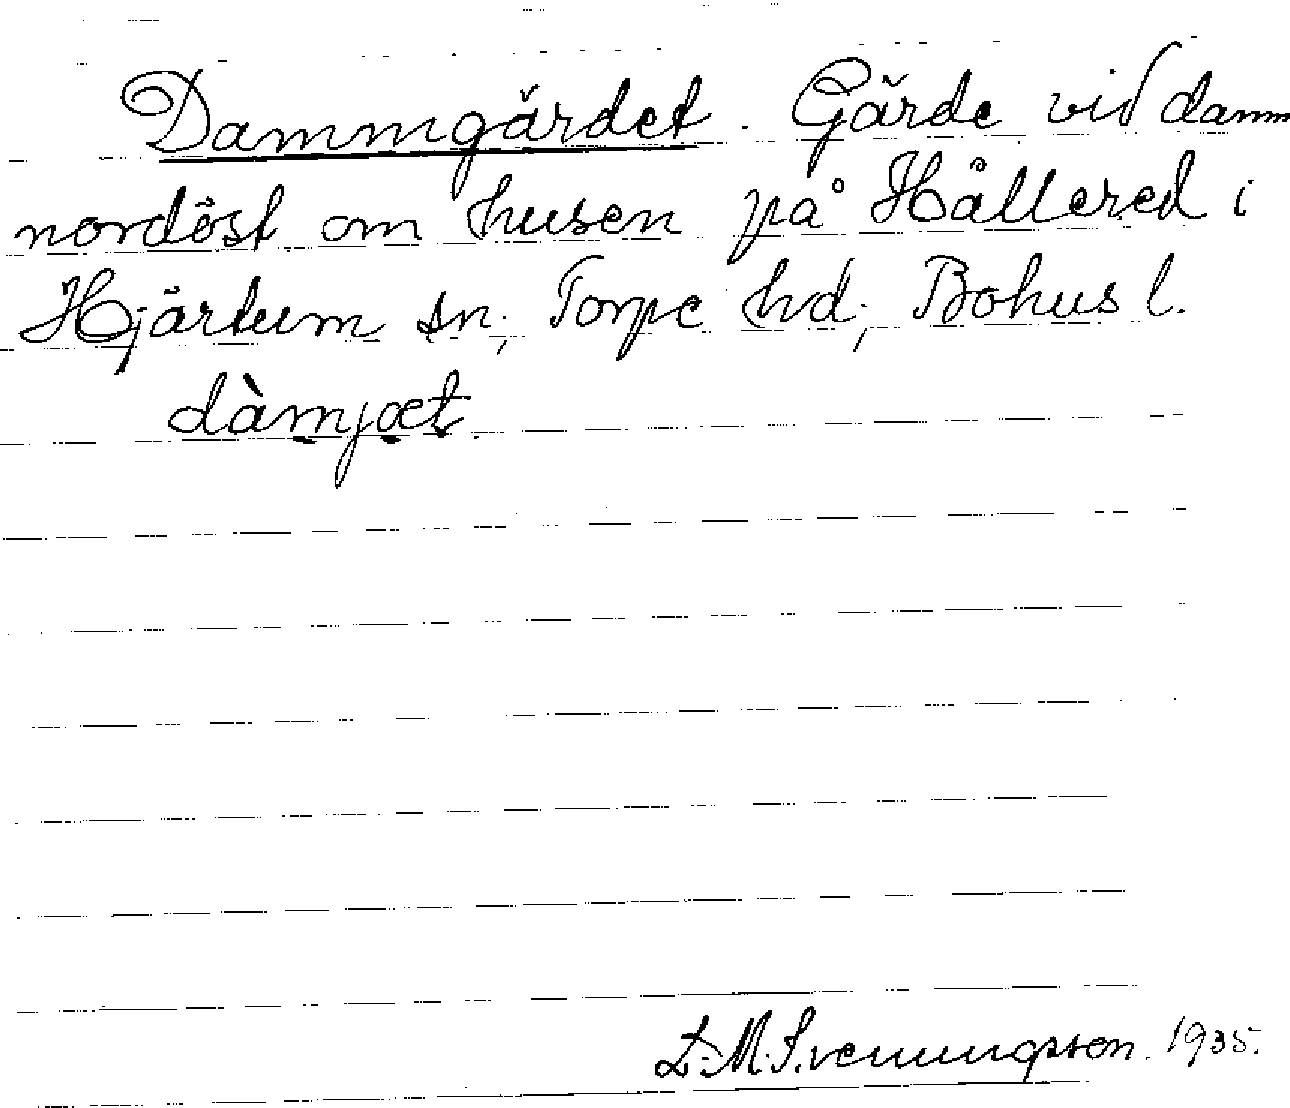 Dammgärdet. Gärde vid damm
nordöst om husen på Hållered i
Hjärtum sn; Torpe hd; Bohus l.
dàmjæt.
L. M. Svenungsson. 1935.